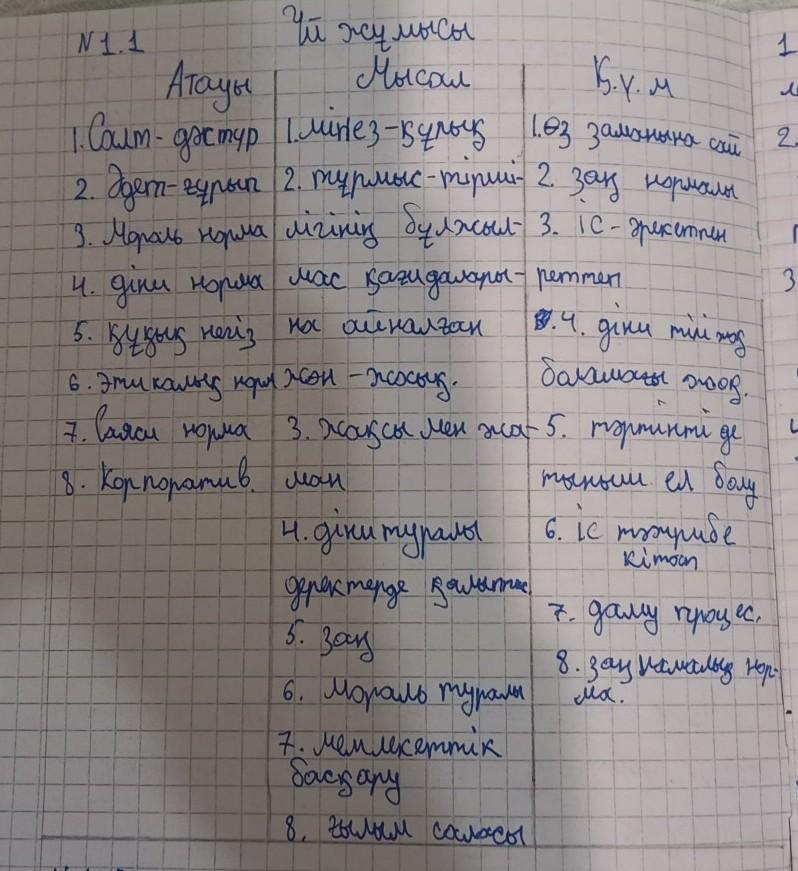 Үй жұмысы
N 1.1
Атауы
1. Салт-дәстүр
2. Әдет-ғұрып
3. Мораль норма
4. діни норма
5. құқық негіз
6. Этикалық норм
7. Саяси норма
8. Корпоратив.
Мысал
1. мінез-құлық
2. тұрмыс-тірші-
лігінің бұлжыл-
мас қағидалары-
на айналған
жөн-жосық.
3. жақсы мен жа-
ман
4. діни туралы
деректерде қалыптас.
5. Заң
6. Мораль туралы
7. мемлекеттік
басқару
8. ғылым саласы
Қ.Ү.М
1. Өз заманына сай
2. заң нормалы
3. іс-әрекетпен
реттеп
4. діни тиім жоқ
баламасы жоқ.
5. тәртіпті де
тыныш ел болу
6. іс тәжірибе
кітап
7. даму процес.
8. заңнамалық нор-
ма.
1
2.
3